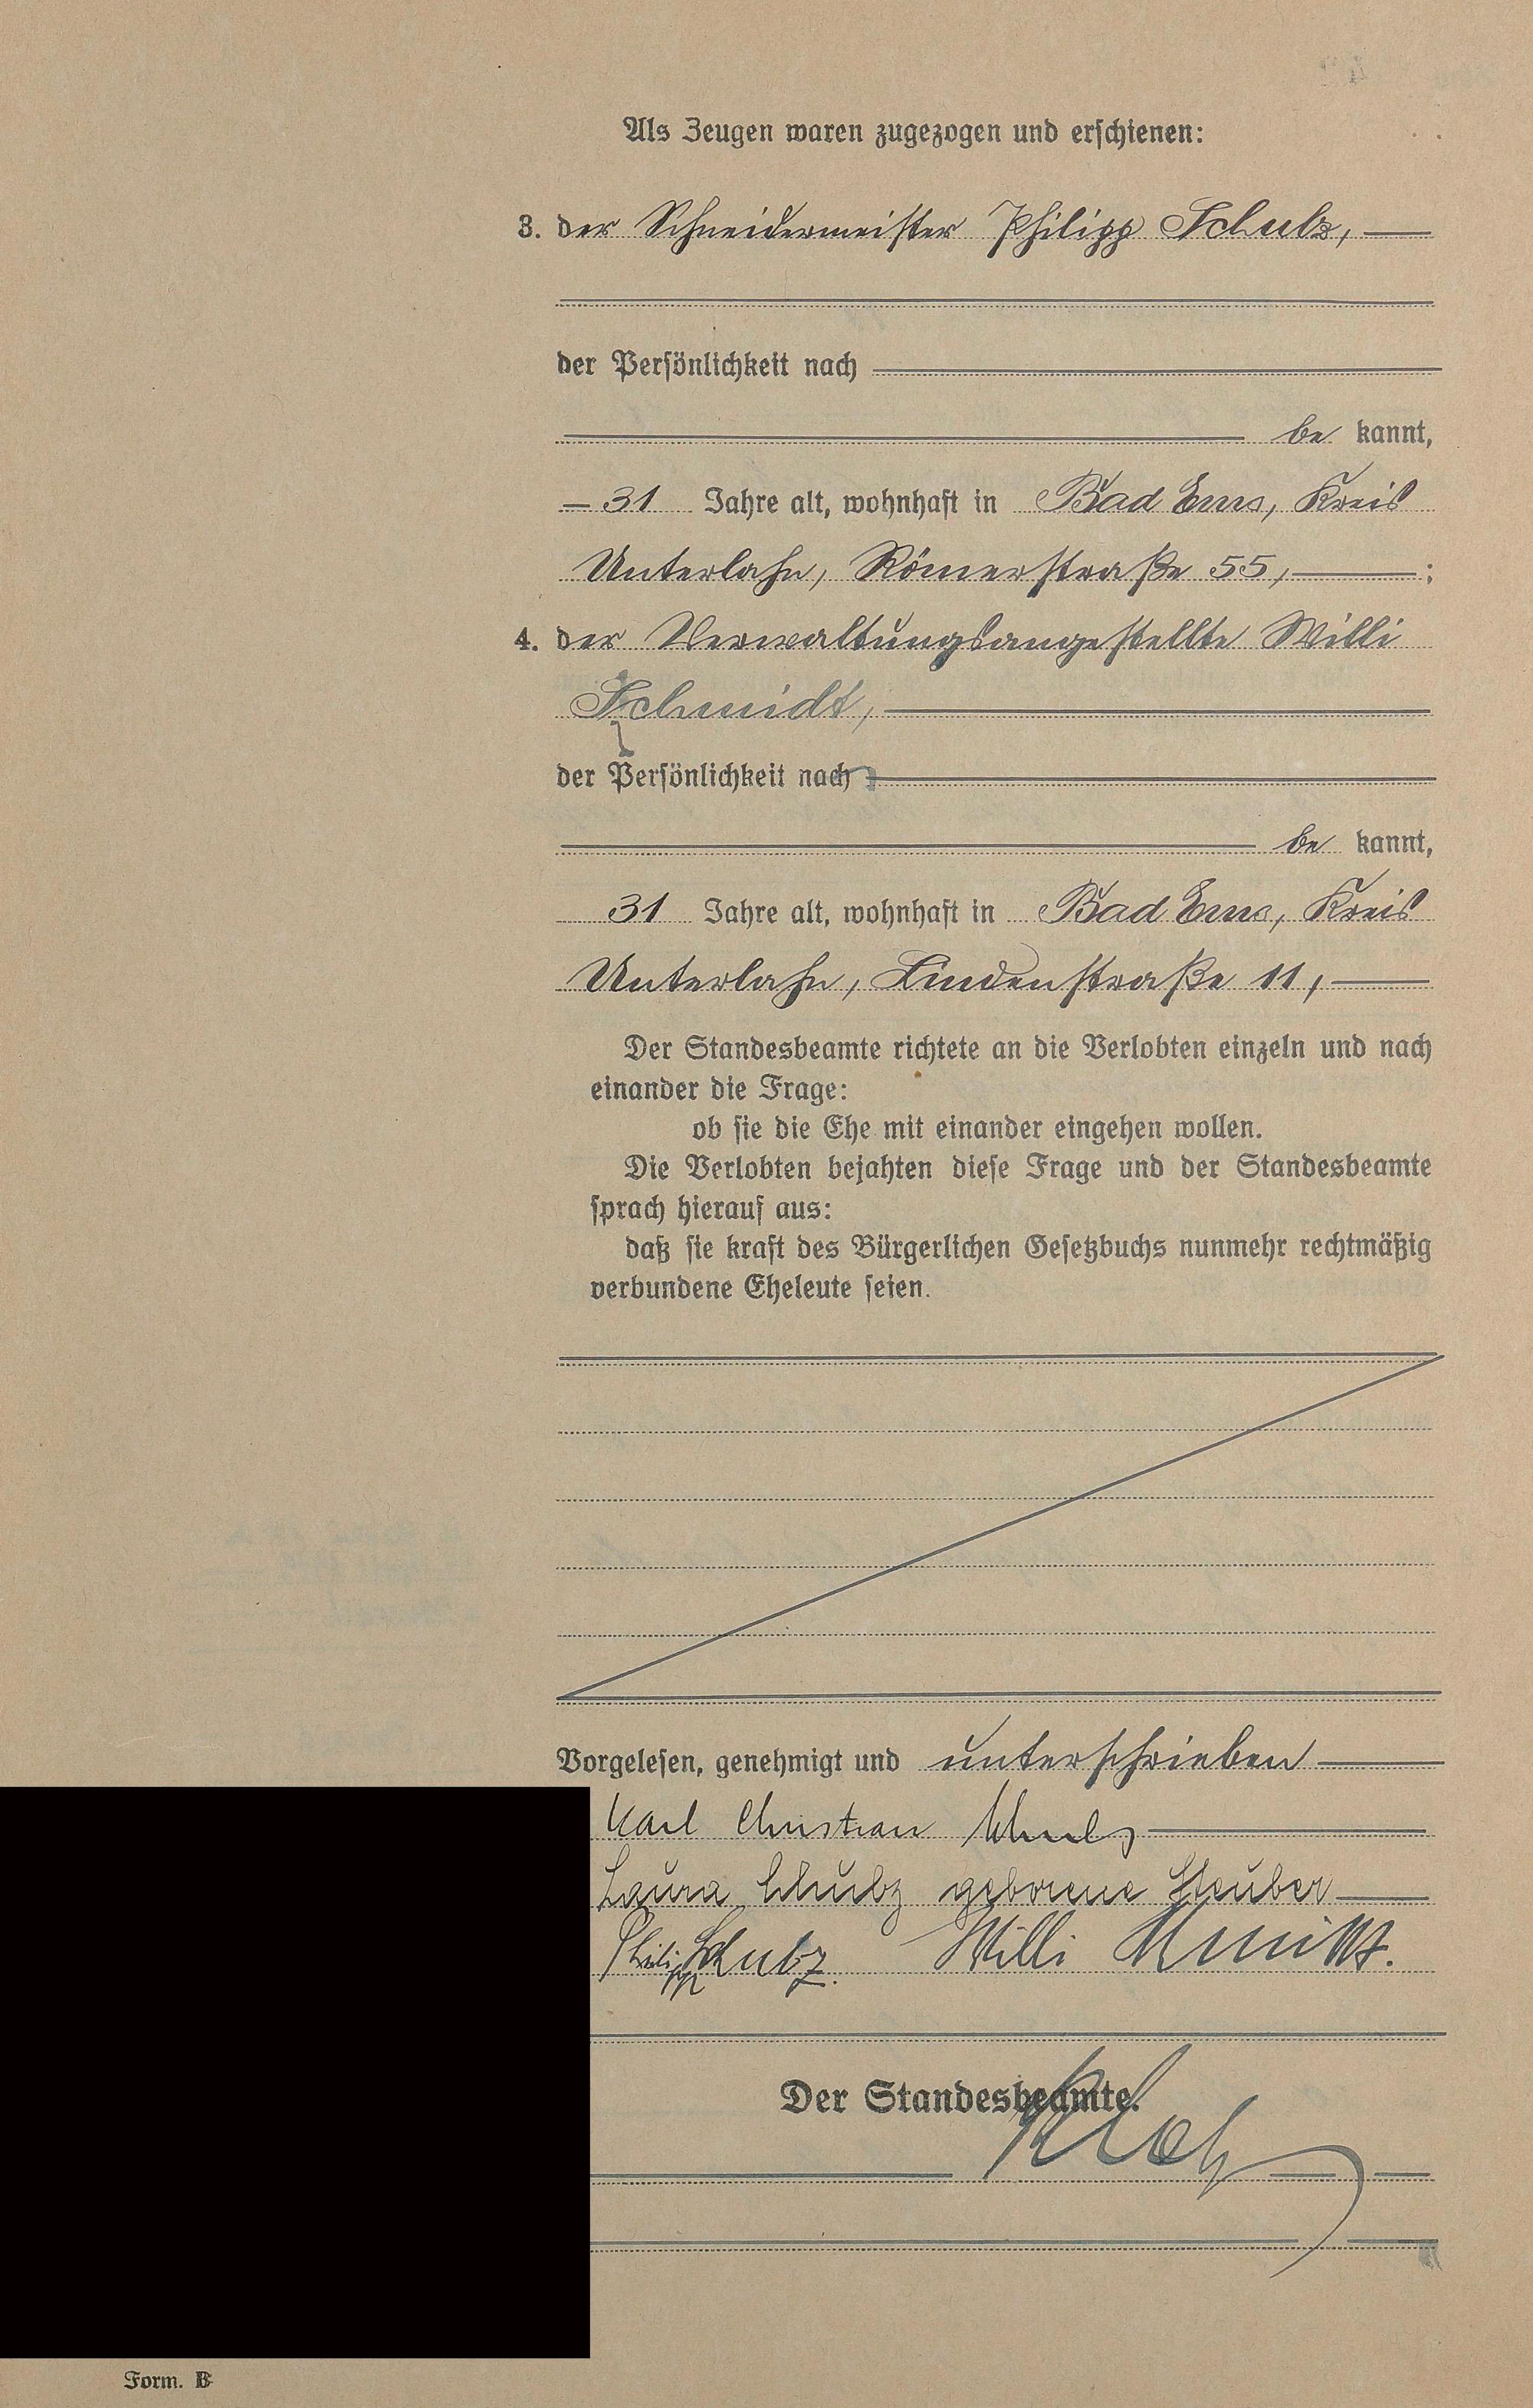 Als Zeugen waren zugezogen und erschienen:
3. der Schneidermeister Philipp Schulz,
der Persönlichkeit nach
be kannt,
31 Jahre alt, wohnhaft in Bad Ems, Kreis
Unterlahn, Römerstraße 55, ;
4. der Verwaltungsangestellte Willi
Schmidt,
der Persönlichkeit nach
be kannt,
31 Jahre alt, wohnhaft in Bad Ems, Kreis
Unterlahn, Lindenstraße 11,
Der Standesbeamte richtete an die Verlobten einzeln und nach
einander die Frage:
ob sie die Ehe mit einander eingehen wollen.
Die Verlobten bejahten diese Frage und der Standesbeamte
sprach hierauf aus:
daß sie kraft des Bürgerlichen Gesetzbuchs nunmehr rechtmäßig
verbundene Eheleute seien.
Vorgelesen, genehmigt und unterschrieben
Karl Christian Schulz
Laura Schulz geborene Steuber
Philipp Schulz. Willi Schmidt.
Der Standesbeamte.
Form. B